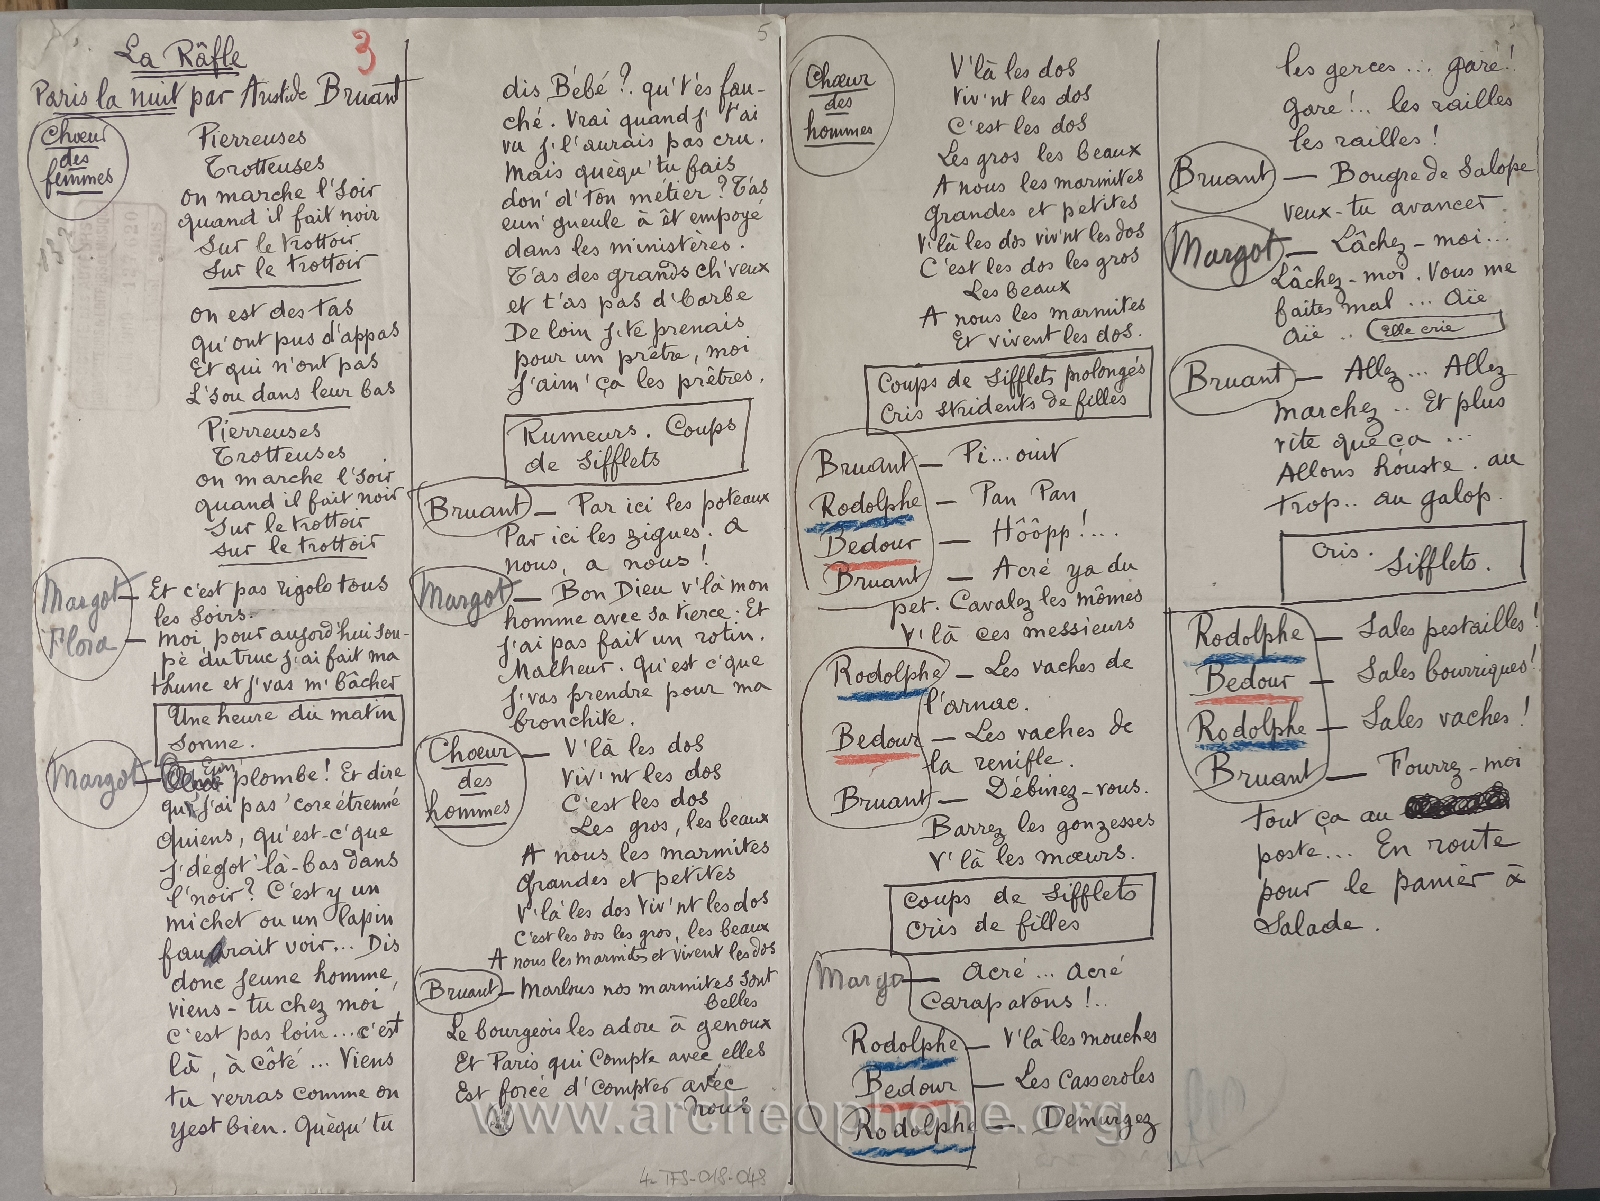 La Râfle
3
Paris la nuit par Aristide Bruant
Chœur
des
femmes
Pierreuses
Trotteuses
on marche l'soir
quand il fait noir
Sur le trottoir
Sur le trottoir
on est des tas
qu'ont pus d'appas
Et qui n'ont pas
L'sou dans leur bas
Pierreuses
Trotteuses
on marche l'soir
quand il fait noir
Sur le trottoir
Sur le trottoir
Margot — Et c'est pas rigolo tous
les soirs.
Flora — moi, pour aujord'hui sou-
pé du truc j'ai fait ma
thune et j'vas m'bâcher
Une heure du matin
sonne.
Margot — Eun' plombe! Et dire
qu' j'ai pas 'core étrenné
Quiens, qu'est-c'que
j'dégot' là-bas dans
l'noir? C'est y un
michet ou un lapin
faudrait voir... Dis
donc jeune homme,
viens-tu chez moi,
c'est pas loin... c'est
là, à côté... Viens
tu verras comme on
yest bien. Quèqu'tu
5
dis Bébé?. qu't'es fau-
ché. Vrai quand j' t'ai
vu j'l'aurais pas cru.
Mais quèqu'tu fais
don' d'ton métier? T'as
eun' gueule à êt' empoyé
dans les ministères.
T'as des grands ch'veux
et t'as pas d'barbe
De loin j'te prenais
pour un prêtre, moi
j'aim' ça les prêtres.
Rumeurs. Coups
de sifflets
Bruant — Par ici les poteaux
Par ici les zigues. A
nous, a nous!
Margot — Bon Dieu v'là mon
homme avec sa tierce. Et
j'ai pas fait un rotin.
Malheur. Qu'est c'que
j'vas prendre pour ma
bronchite.
Chœur
des
hommes
— V'là les dos
Viv'nt les dos
C'est les dos
Les gros, les beaux
A nous les marmites
Grandes et petites
V'là les dos Viv'nt les dos
C'est les dos les gros, les beaux
A nous les marmites et vivent les dos
Bruant — Marlous nos marmites sont
belles
Le bourgeois les adore à genoux
Et Paris qui compte avec elles
Est forcé d'compter avec
nous.
4-TFS-018-048
Chœur
des
hommes
V'là les dos
Viv'nt les dos
C'est les dos
Les gros les beaux
A nous les marmites
Grandes et petites
V'là les dos viv'nt les dos
C'est les dos les gros
Les beaux
A nous les marmites
Et vivent les dos.
Coups de sifflets prolongés
Cris stridents de filles
Bruant — Pi...ouit
Rodolphe — Pan Pan
Bedour — Hôôpp!...
Bruant — Acré ya du
pet. Cavalez les mômes
V'là ces messieurs
Rodolphe — Les vaches de
l'arnac.
Bedour — Les vaches de
la renifle.
Bruant — Débinez-vous.
Barrez les gonzesses
V'là les mœurs.
Coups de sifflets
Cris de filles
Margot — Acré... Acré
Carapatons!..
Rodolphe — V'là les mouches
Bedour — Les Casseroles
Rodolphe — Demurgez
les gerces... gare!
Gare!.. les railles
les railles!
Bruant — Bougre de salope
veux-tu avancer
Margot — Lâchez-moi...
Lâchez-moi. Vous me
faites mal... Aïe
Aïe.. Elle crie
Bruant — Allez... Allez
Marchez.. Et plus
vite que ça...
Allons houste. au
trop.. au galop.
Cris.
Sifflets.
Rodolphe — Sales pestailles!
Bedour — Sales bourriques!
Rodolphe — Sales vaches!
Bruant — Fourrez-moi
tout ça au
poste... En route
pour le panier à
Salade.
www.archeophone.org